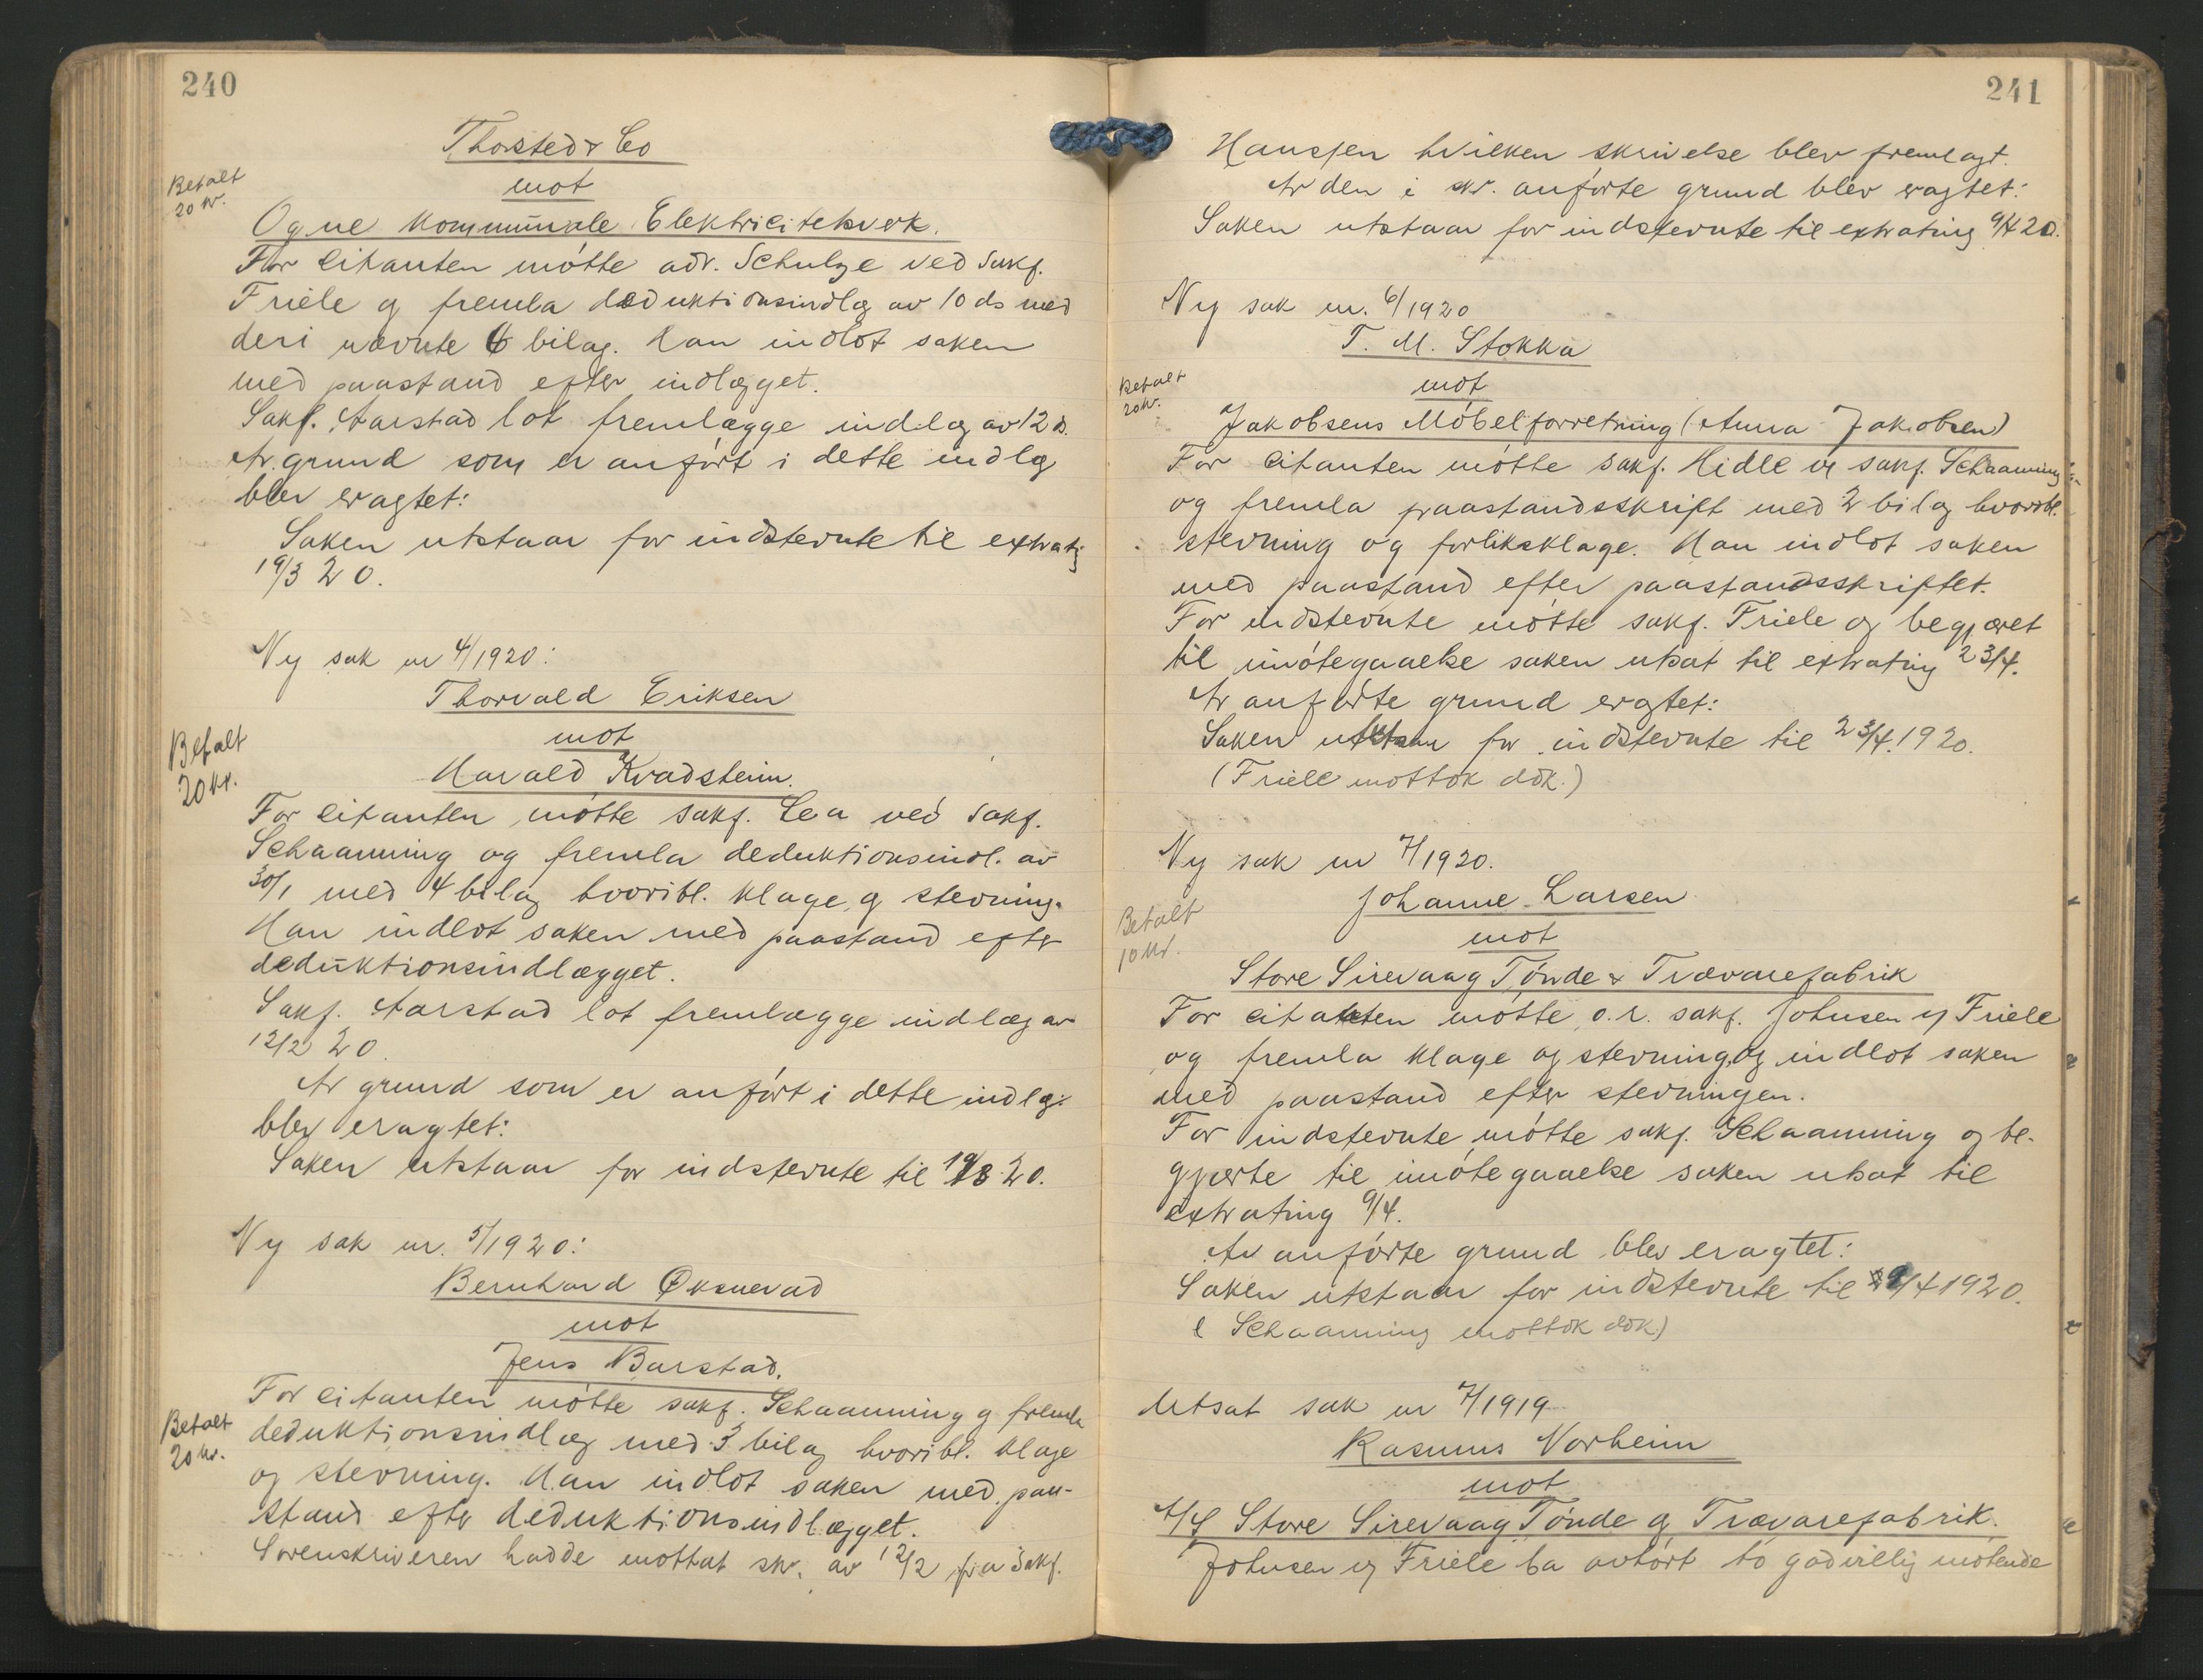 240
Thorsted & Co
mot
Betalt
20 kr.
Ogne kommunale Elektricitetsverk.
For citanten møtte adv. Schulze ved sakf.
Friele og fremla deduktionsindlæg av 10 ds med
deri nævnte 6 bilag. Han indlot saken
med paastand efter indlægget.
Sakf. Aarstad lot fremlægge indlæg av 12 ds.
Av grund som er anført i dette indlæg
blev eragtet:
Saken utstaar for indstevnte til extrating
19/3 20.
Ny sak nr 4/1920:
Thorvald Eriksen
mot
Betalt
20 kr.
Harald Kvadsheim.
For citanten møtte sakf. Lea ved sakf.
Schaanning og fremla deduktionsindl. av
30/1 med 4 bilag hvoribl. klage og stevning.
Han indlot saken med paastand efter
deduktionsindlægget.
Sakf. Aarstad lot fremlægge indlæg av
12/2 20.
Av grund som er anført i dette indlæg
blev eragtet:
Saken utstaar for indstevnte til 19/3 20.
Ny sak nr. 5/1920:
Bernhard Øksnevad
mot
Jens Barstad.
For citanten møtte sakf. Schaanning og fremla
Betalt
20 kr.
deduktionsindlæg med 3 bilag hvoribl. klage
og stevning. Han indlot saken med paa-
stand efter deduktionsindlægget.
Sorenskriveren hadde mottat skr. av 12/2 fra sakf.
241
Hansen hvilken skrivelse blev fremlagt.
Av den i skr. anførte grund blev eragtet:
Saken utstaar for indstevnte til extrating 9/4 20.
Ny sak nr. 6/1920
T. M. Stokka
mot
Betalt
20 kr.
Jakobsens Møbelforretning (Anna Jakobsen)
For citanten møtte sakf. Hidle v/ sakf. Schaanning
og fremla paastandsskrift med 2 bilag hvoribl.
stevning og forliksklage. Han indlot saken
med paastand efter paastandsskriftet.
For indstevnte møtte sakf. Friele og begjæret
til imøtegaaelse saken utsat til extrating 23/4.
Av anførte grund eragtet:
Saken utstaar for indstevnte til 23/4. 1920.
(Friele mottok dok.)
Ny sak nr 7/1920.
Johanne Larsen
mot
Betalt
10 kr.
Store Sirevaag Tønde & Trævarefabrik
For citanten møtte o.r. sakf. Johnsen v/ Friele
og fremla klage og stevning og indlot saken
med paastand efter stevningen.
For indstevnte møtte sakf. Schaanning og be-
gjærte til imøtegaaelse saken utsat til
extrating 9/4.
Av anførte grund blev eragtet:
Saken utstaar for indstevnte til 9/4 1920.
(Schaanning mottok dok.)
Utsat sak nr 7/1919
Rasmus Varheim
mot
A/S Store Sirevaag Tønde og Trævarefabrik.
Johnsen v/ Friele ba avhørt to godvillig møtende